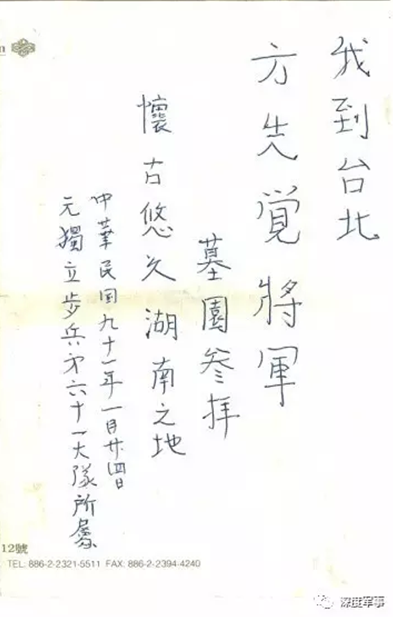 我到台北
方先覚將軍
墓園參拝
懷古悠久湖南之地
中華民国九十一年一月廿四日
元獨立步兵才六十一大隊所屬
12號
TEL: 886-2-2321-5511 FAX: 886-2-2394-4240
深度军事